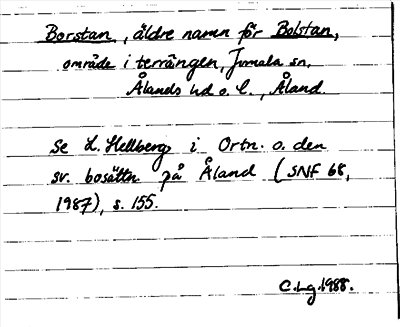 Borstan, äldre namn för Bolstan,
område i terrängen, Jomala sn,
Ålands hd o. l., Åland.
Se L. Hellberg i Ortn. o. den
sv. bosättn på Åland (SNF 68,
1987), s. 155.
C.Lg.1988.